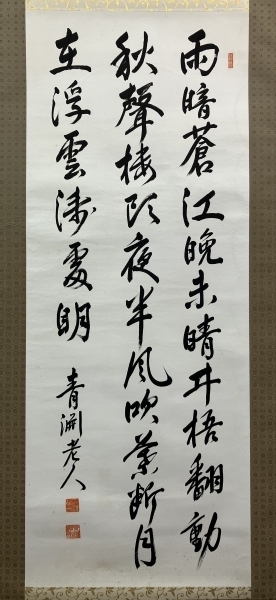 雨暗蒼江晩未晴井梧翻動
秋聲楼頭夜半風吹葉断月
在浮雲浅処明
青淵老人